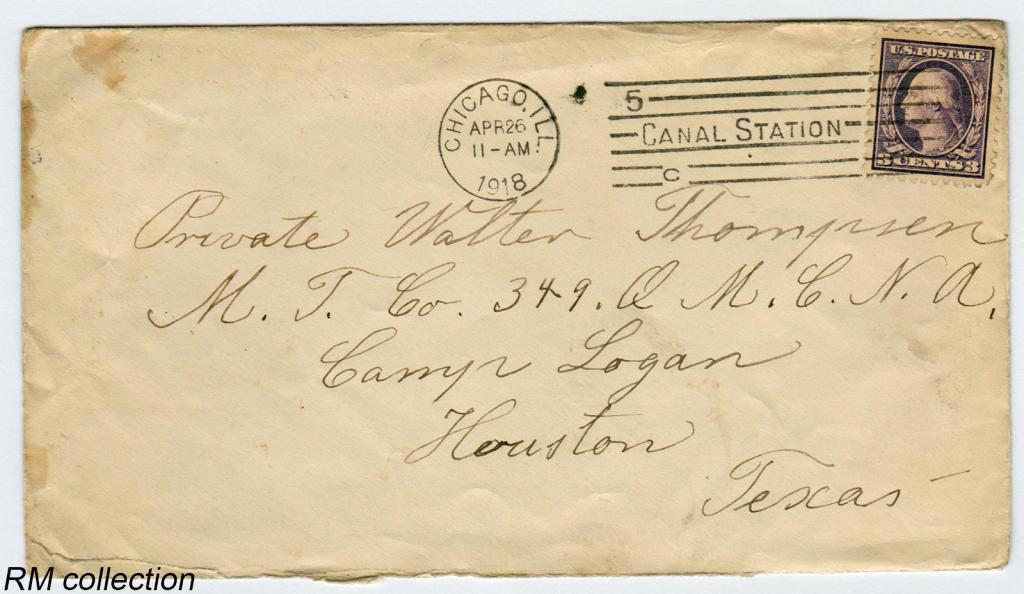 U.S. POSTAGE
3 CENTS 3
CHICAGO, ILL.
APR 26
11-AM
1918
5
CANAL STATION
C
Private Walter Thompsen
M. T. Co. 349. Q M. C. N. A.
Camp Logan
Houston
Texas
RM collection